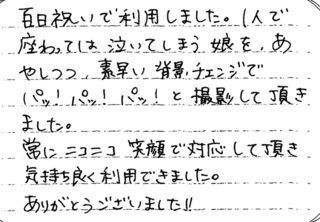 百日祝いで利用しました。1人で
座わっては泣いてしまう娘を、あ
やしつつ、素早い背景チェンジで
パッ!パッ!パッ!と撮影して頂き
ました。
常にニコニコ笑顔で対応して頂き
気持ち良く利用できました。
ありがとうございました!!